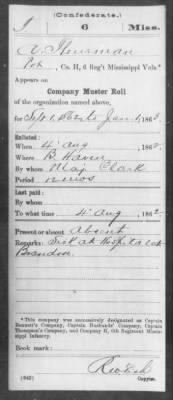 (Confederate.)
6 Miss.
Pvt, Co. H, 6 Reg't Mississippi Vols.*
Appears on
Company Muster Roll
of the organization named above,
for Sept 1, 1862 to Jan 1, 1863.
Enlisted:
When 4" Aug, 1862.
Where B. Haven
By whom Maj. Clark
Period 12 mos
Last paid:
By whom
To what time 4" Aug, 1862.
Present or absent Absent
Remarks: Sick at Hospital at
Brandon.
*This company was successively designated as Captain
Bennett's Company, Captain
Thompson's Company, and Company H, 6th Regiment Mississippi
Infantry.
Book mark:
(642)
Copyist.